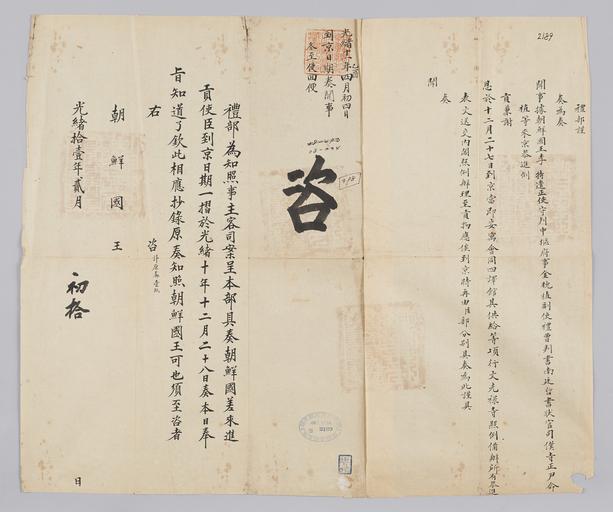 2189
禮部謹
奏為奏
聞事據朝鮮國王李 特遣正使守判中樞府事金 副使禮曹判書南廷哲書狀官司僕寺正尹命
植等來京恭進例
貢兼謝
恩於十二月二十七日到京當即妥寓會同四譯館其供給等項行文光祿寺照例備辦所有恭進
表文送交內閣照例辦理至貢物應俟到京時再由臣部分別具奏為此謹具
奏
聞
光緒十一年四月初四日
到京日期奏聞事
冬至使回便
咨
禮部為知照事主客司案呈本部具奏朝鮮國差來進
貢使臣到京日期一摺於光緒十年十二月二十八日奏本日奉
旨知道了欽此相應抄錄原奏知照朝鮮國王可也須至咨者
右 咨
計原奏壹紙
朝鮮國王
光緒拾壹年貳月 初拾 日